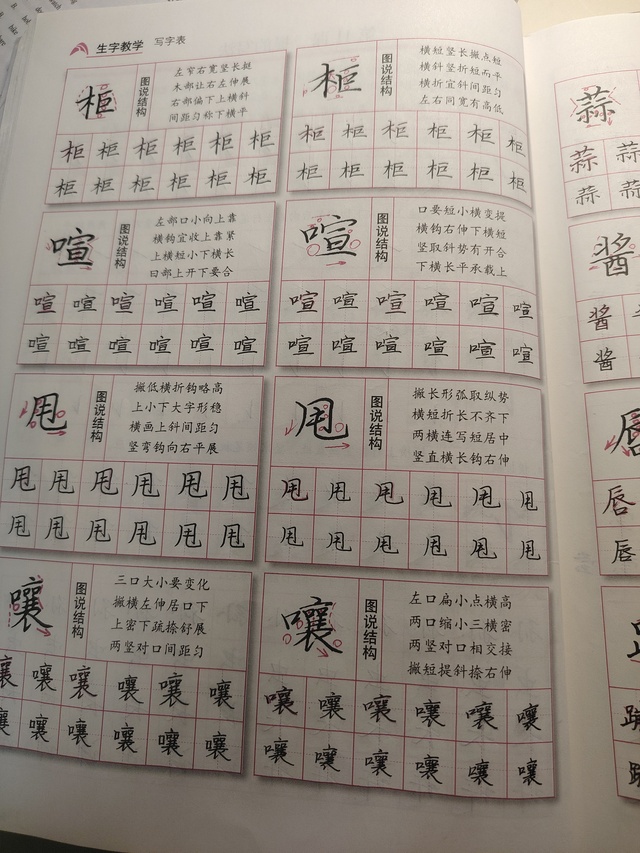 生字教学 写字表
柜
图说结构
左窄右宽竖长挺
木部让右左伸展
右部偏下上横斜
间距匀称下横平
柜 柜 柜 柜 柜 柜
柜 柜 柜 柜 柜 柜
柜
图说结构
横短竖长撇点短
横斜竖折短而平
横折宜斜间距匀
左右同宽有高低
柜 柜 柜 柜 柜 柜
柜 柜 柜 柜 柜 柜
喧
图说结构
左部口小向上靠
横钩宜收上靠紧
上横短小下横长
曰部上开下要合
喧 喧 喧 喧 喧 喧
喧 喧 喧 喧 喧 喧
喧
图说结构
口要短小横变提
横钩右伸下横短
竖取斜势有开合
下横长平承载上
喧 喧 喧 喧 喧 喧
喧 喧 喧 喧 喧 喧
甩
图说结构
撇低横折钩略高
上小下大字形稳
横画上斜间距匀
竖弯钩向右平展
甩 甩 甩 甩 甩 甩
甩 甩 甩 甩 甩 甩
甩
图说结构
撇长形弧取纵势
横短折长不齐下
两横连写短居中
竖直横长钩右伸
甩 甩 甩 甩 甩 甩
甩 甩 甩 甩 甩 甩
嚷
图说结构
三口大小要变化
撇横左伸居口下
上密下疏捺舒展
两竖对口间距匀
嚷 嚷 嚷 嚷 嚷 嚷
嚷 嚷 嚷 嚷 嚷 嚷
嚷
图说结构
左口扁小点横高
两口缩小三横密
两竖对口相交接
撇短提斜捺右伸
嚷 嚷 嚷 嚷 嚷 嚷
嚷 嚷 嚷 嚷 嚷 嚷
蒜
蒜 蒜
蒜 蒜
酱
酱
酱
唇
唇
唇